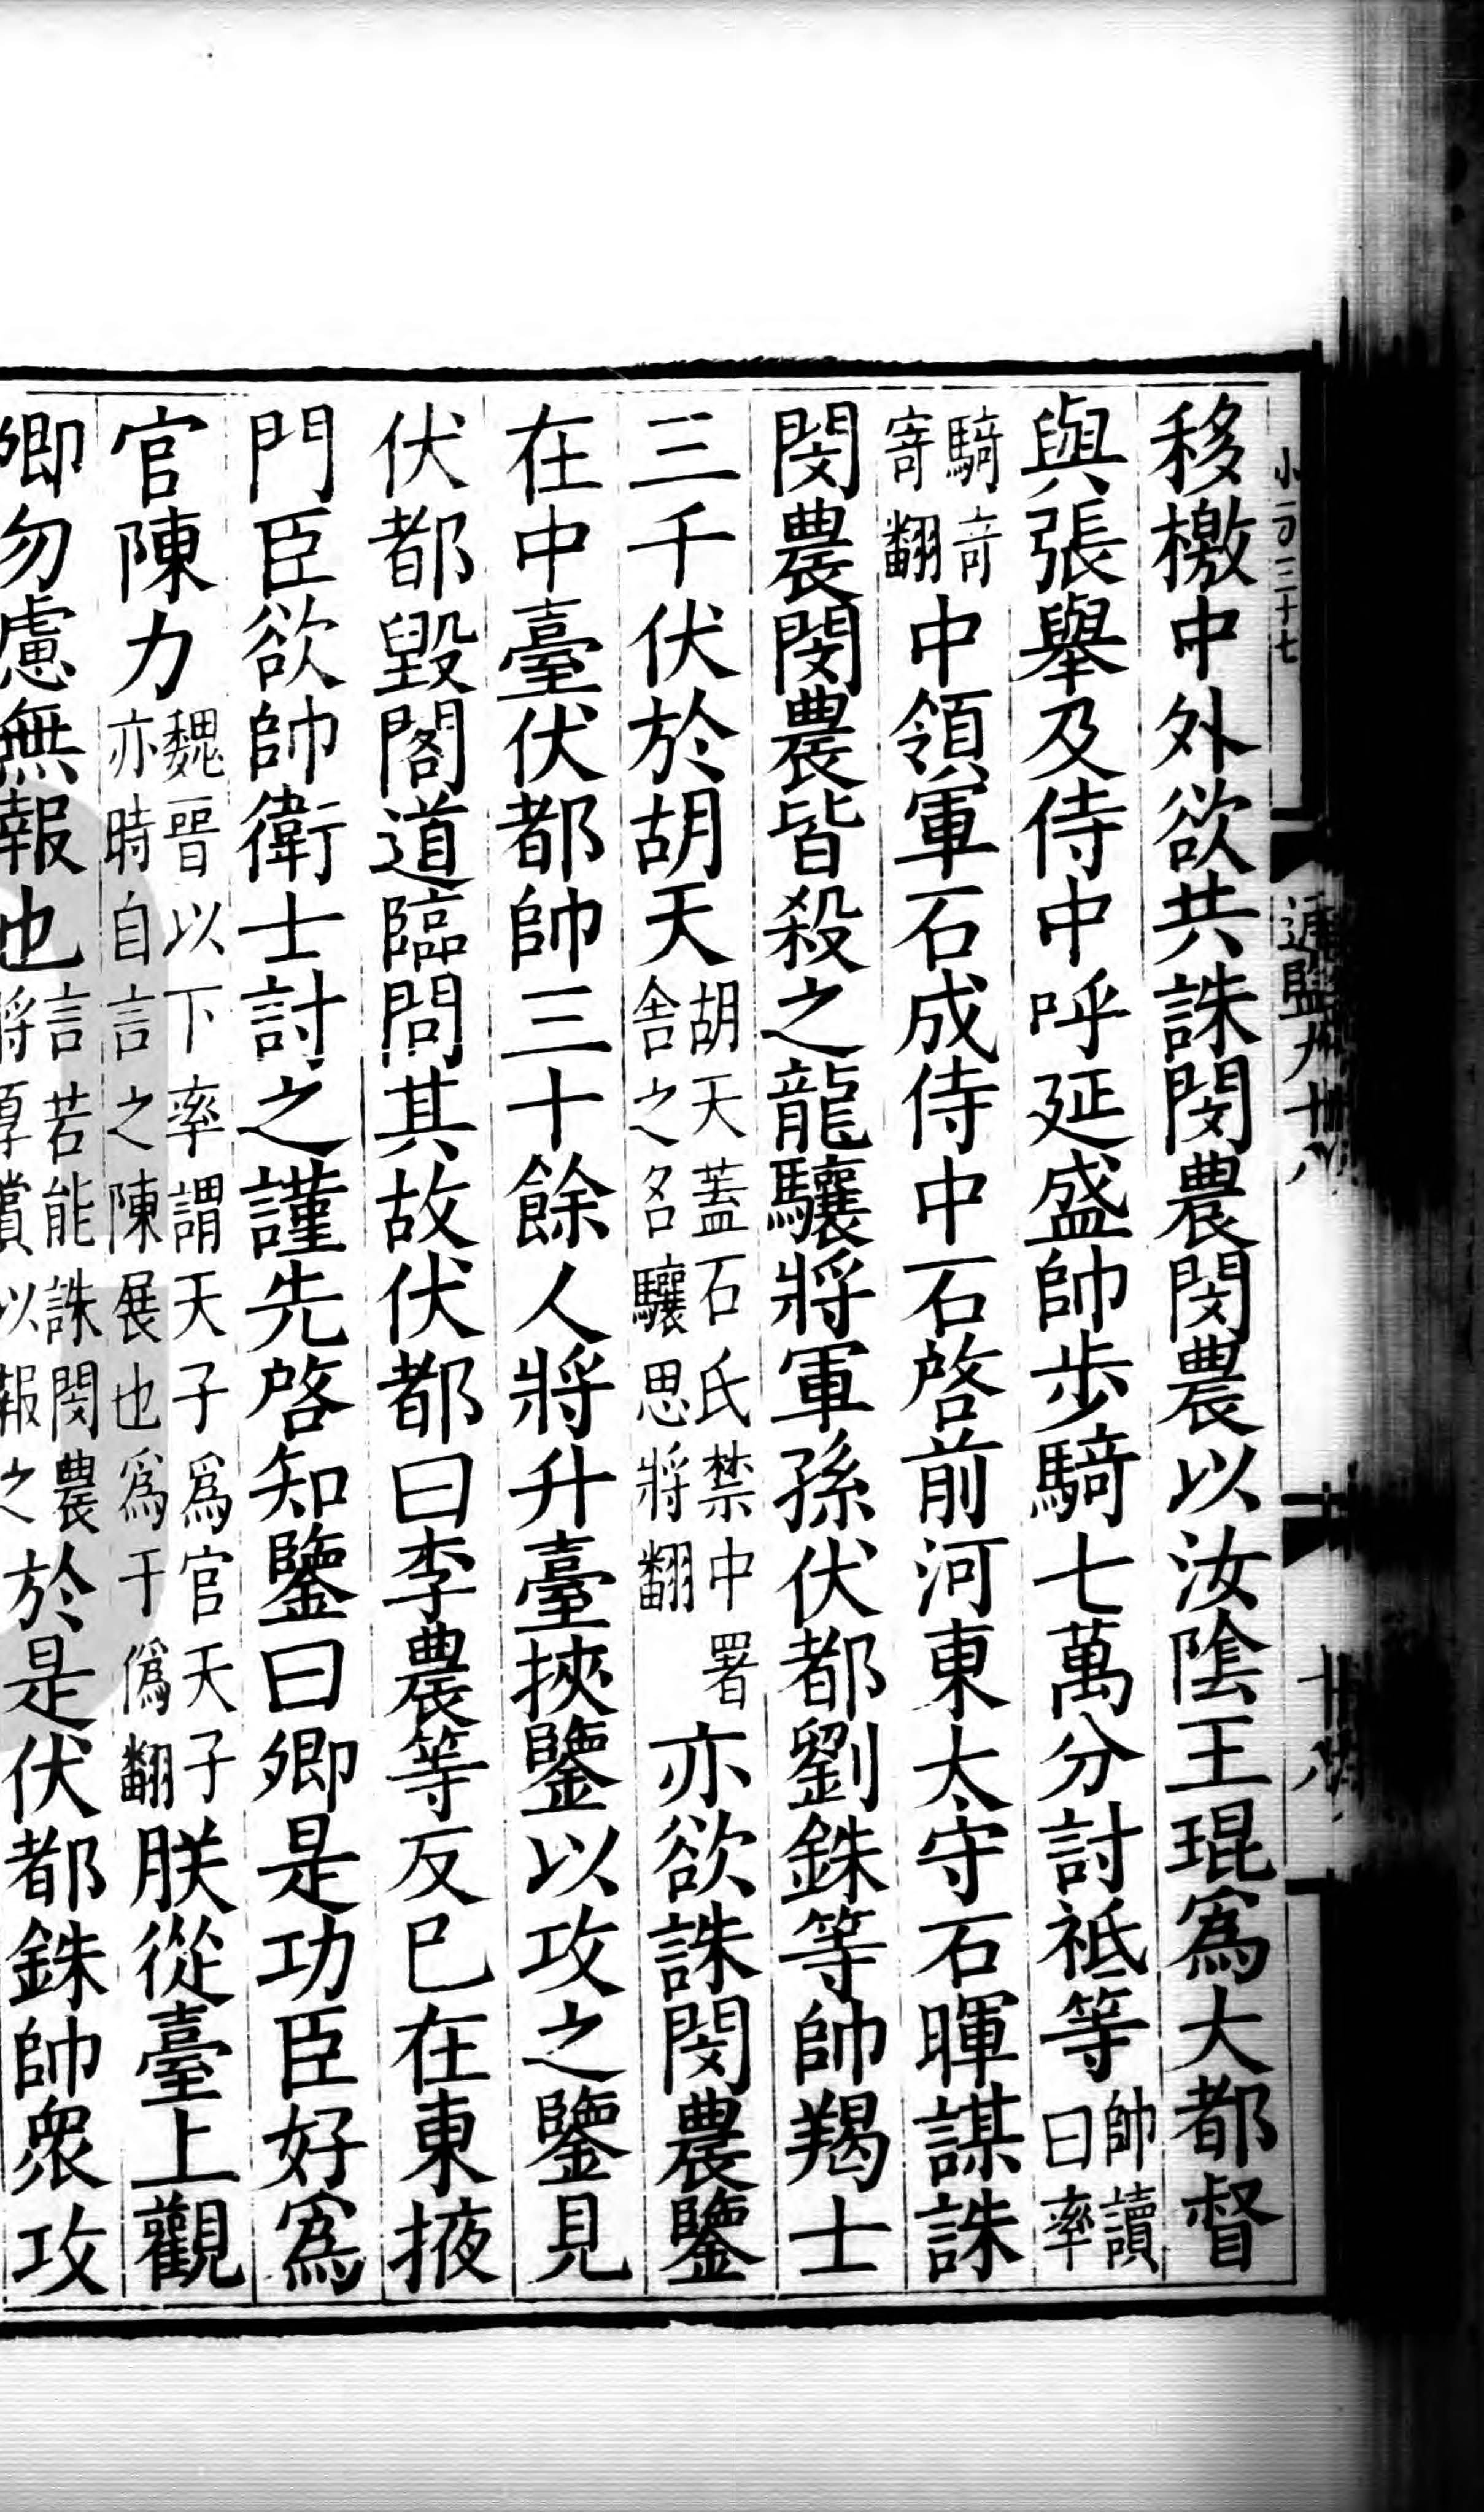 移檄中外欲共誅閔農閔農以汝隂王琨爲大都督
與張舉及侍中呼延盛帥步騎七萬分討祗等帥讀曰率
騎奇寄翻中領軍石成侍中石啓前河東太守石暉謀誅
閔農閔農皆殺之龍驤將軍孫伏都劉銖等帥羯士
三千伏於胡天胡天蓋石氏禁中署舍之名驤思將翻亦欲誅閔農鑒
在中臺伏都帥三十餘人將升臺挾鑒以攻之鑒見
伏都毀閣道臨問其故伏都曰李農等反已在東掖
門臣欲帥衛士討之謹先啓知鑒曰卿是功臣好爲
官陳力魏晉以下率謂天子爲官天子亦時自言之陳展也爲于僞翻朕從臺上觀
卿勿慮無報也言若能誅閔農將厚賞以報之於是伏都銖帥衆攻